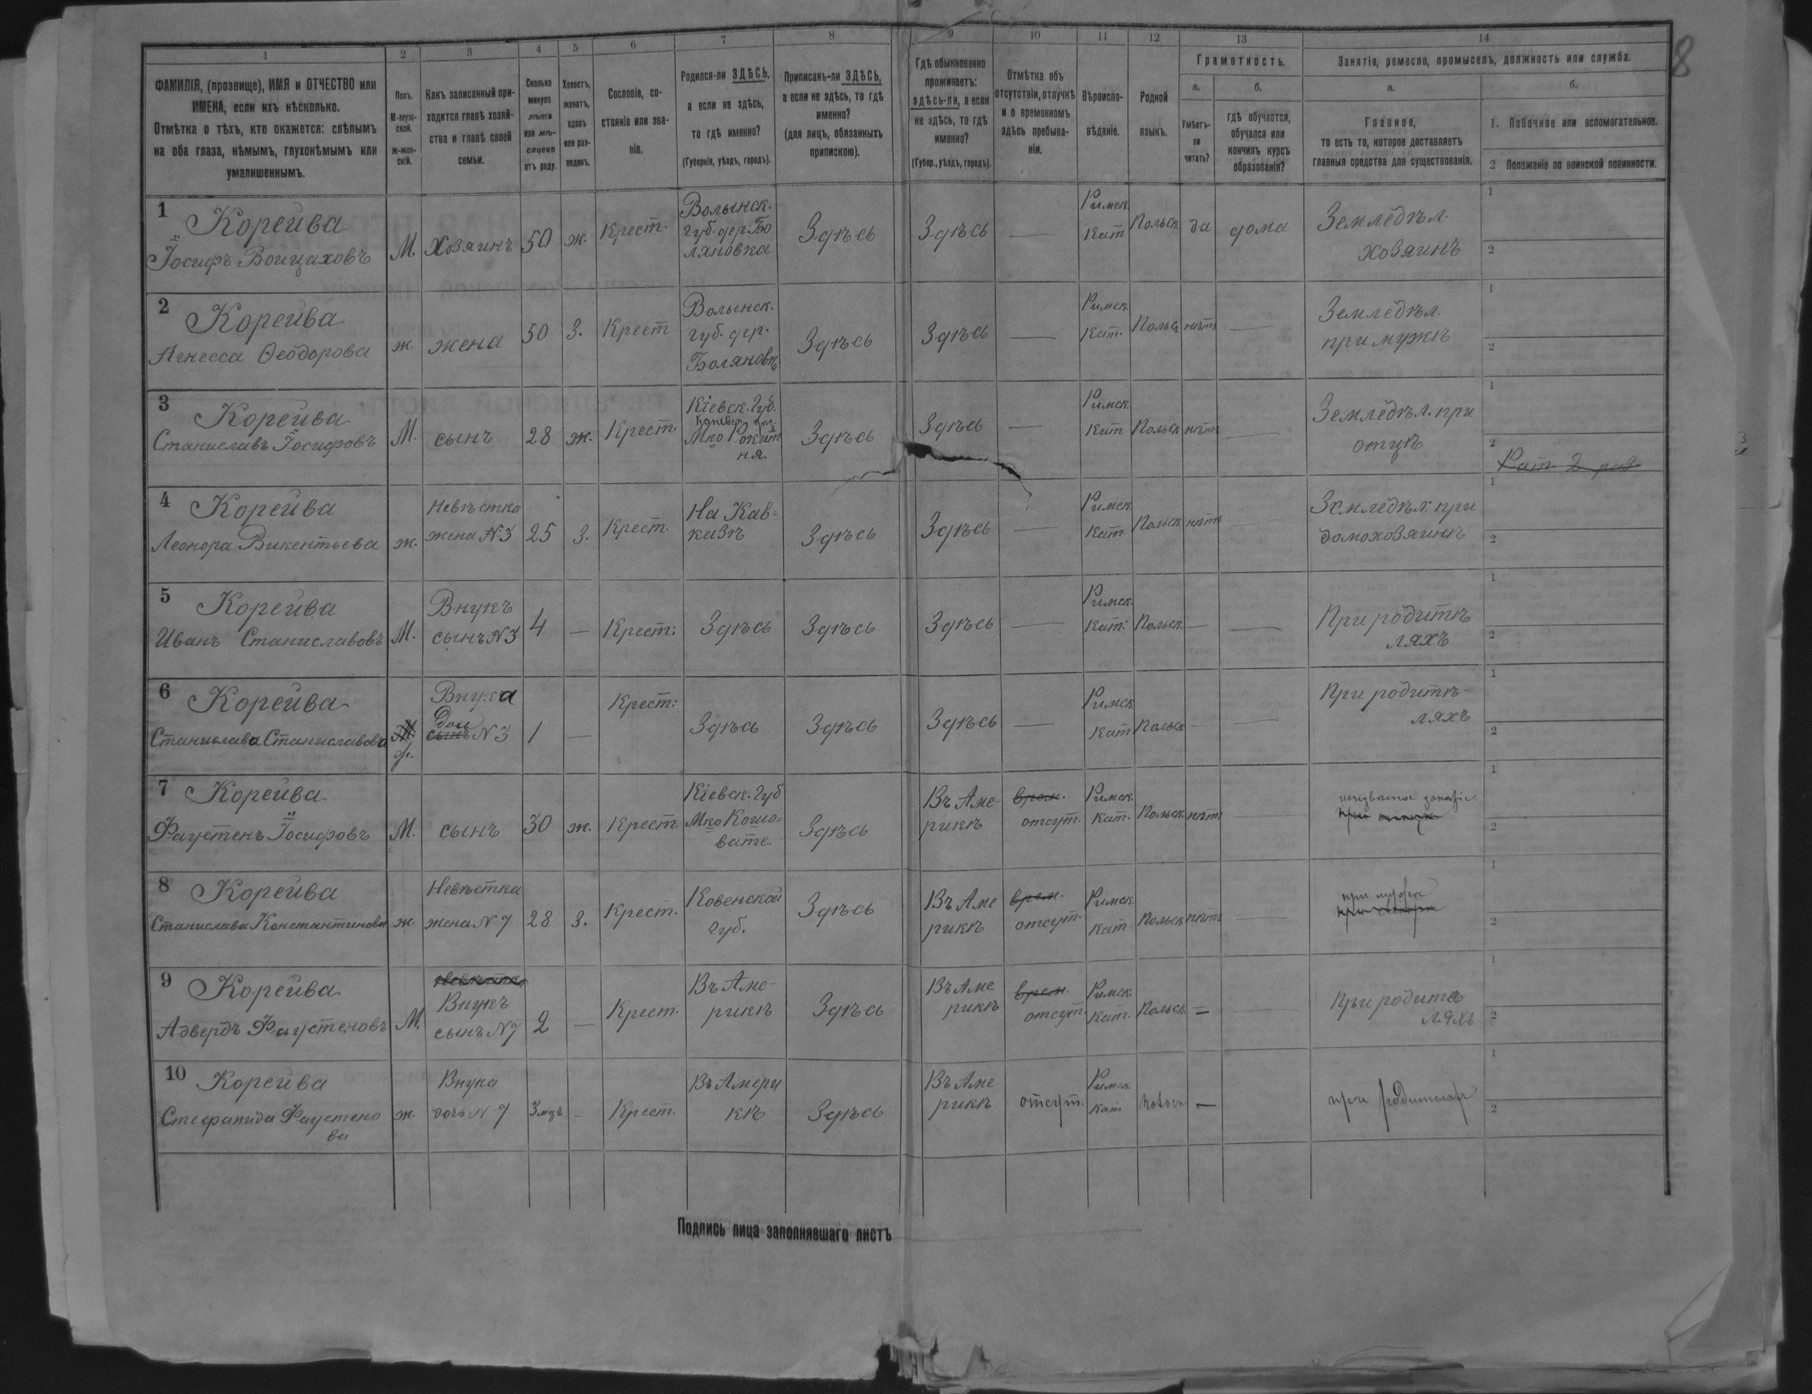 8
1 2 3 4 5 6 7 8 9 10 11 12 13 14
ФАМИЛІЯ, (прозвище), ИМЯ и ОТЧЕСТВО или
ИМЕНА, если ихъ нѣсколько.
Отмѣтка о тѣхъ, кто окажется: слѣпымъ
на оба глаза, нѣмымъ, глухонѣмымъ или
умалишеннымъ.
Полъ.
М-муж-
ской.
ж-жен-
скій.
Какъ записанный при-
ходится главѣ хозяй-
ства и главѣ своей
семьи.
Сколько
минуло
лѣтъ
или мѣ-
сяцевъ
отъ роду.
Холостъ,
женатъ,
вдовъ
или раз-
веденъ.
Сословіе, со-
стояніе или зва-
ніе.
Родился-ли ЗДѢСЬ,
а если не здѣсь,
то гдѣ именно?
(Губернія, уѣздъ, городъ).
Приписанъ-ли ЗДѢСЬ,
а если не здѣсь, то гдѣ
именно?
(для лицъ, обязанныхъ
припискою).
Гдѣ обыкновенно
проживаетъ:
здѣсь-ли, а если
не здѣсь, то гдѣ
именно?
(Губер., уѣздъ, городъ).
Отмѣтка объ
отсутствіи, отлучкѣ
и о временномъ
здѣсь пребыва-
ніи.
Вѣроиспо-
вѣданіе.
Родной
языкъ.
Грамотность.
а.
Умѣетъ-
ли
читать?
б.
гдѣ обучается,
обучался или
кончилъ курсъ
образованія?
Занятіе, ремесло, промыселъ, должность или служба.
а.
Главное,
то есть то, которое доставляетъ
главныя средства для существованія.
б.
1. Побочное или вспомогательное.
2 Положеніе по воинской повинности.
1 Корейва
Іосифъ Войцаховъ М. хозяинъ 50 ж. Крест.
Волынск.
губ. дер. Бо
ляновка
Здѣсь Здѣсь — Римск.
Кат Польск да дома
Земледѣл.
хозяинъ
1
2
2 Корейва
Агнесса Ѳеодорова ж. жена 50 З. Крест
Волынск.
губ. дер.
Боляновк
Здѣсь Здѣсь — Римск.
Кат. Польск нѣт —
Земледѣл.
при мужѣ
1
2
3 Корейва
Станиславъ Іосифовъ М. сынъ 28 ж. Крест.
Кіевск. Губ.
Мко Рокит
ня.
Здѣсь Здѣсь — Римск.
Кат Польск нѣт —
Земледѣл. при
отцѣ
1
2
Рат. 2 раз
4 Корейва
Леонора Викентьева ж.
Невѣстка
жена N3 25 З. Крест.
На Кав-
казѣ
Здѣсь Здѣсь — Римск.
Кат Польск нѣт
Земледѣл. при
домохозяинѣ
1
2
5 Корейва
Иванъ Станиславовъ М.
Внукъ
сынъ N3 4 — Крест. Здѣсь Здѣсь Здѣсь — Римск.
Кат. Польск. — —
При родитѣ
ляхъ
1
2
6 Корейва
Станислава Станиславова М
ж.
Внука
Доч
сынъ N3 1 — Крест. Здѣсь Здѣсь Здѣсь — Римск
Кат Польск — —
При родитѣ-
ляхъ
1
2
7 Корейва
Фаустенъ Іосифовъ М. сынъ 30 ж. Крест.
Кіевск. Губ
Мко Кошо-
вате.
Здѣсь
Въ Аме-
рикѣ
врем.
отсут.
Римск.
Кат. Польск нѣт
1
2
8 Корейва
Станислава Константинова ж.
Невѣстка
жена N7 28 З. Крест.
Ковенской
Губ.
Здѣсь
Въ Аме
рикѣ
врем.
отсут.
Римск.
Кат. Польск нѣт —
при мужѣ
1
2
9 Корейва
Адвердъ Фаустеновъ М.
Невѣстка
Внукъ
сынъ N7 2 — Крест.
Въ Аме-
рикѣ
Здѣсь
Въ Аме
рикѣ
врем.
отсут.
Римск.
Кат. Польск. — —
При родите
ляхъ
1
2
10 Корейва
Стефанида Фаустено
ва
ж.
Внука
дочь N7 3 мѣ — Крест.
Въ Амери
кѣ
Здѣсь
Въ Аме
рикѣ
отсут.
Римск.
Кат Польск —
при родителях
1
2
Подпись лица заполнявшаго листъ